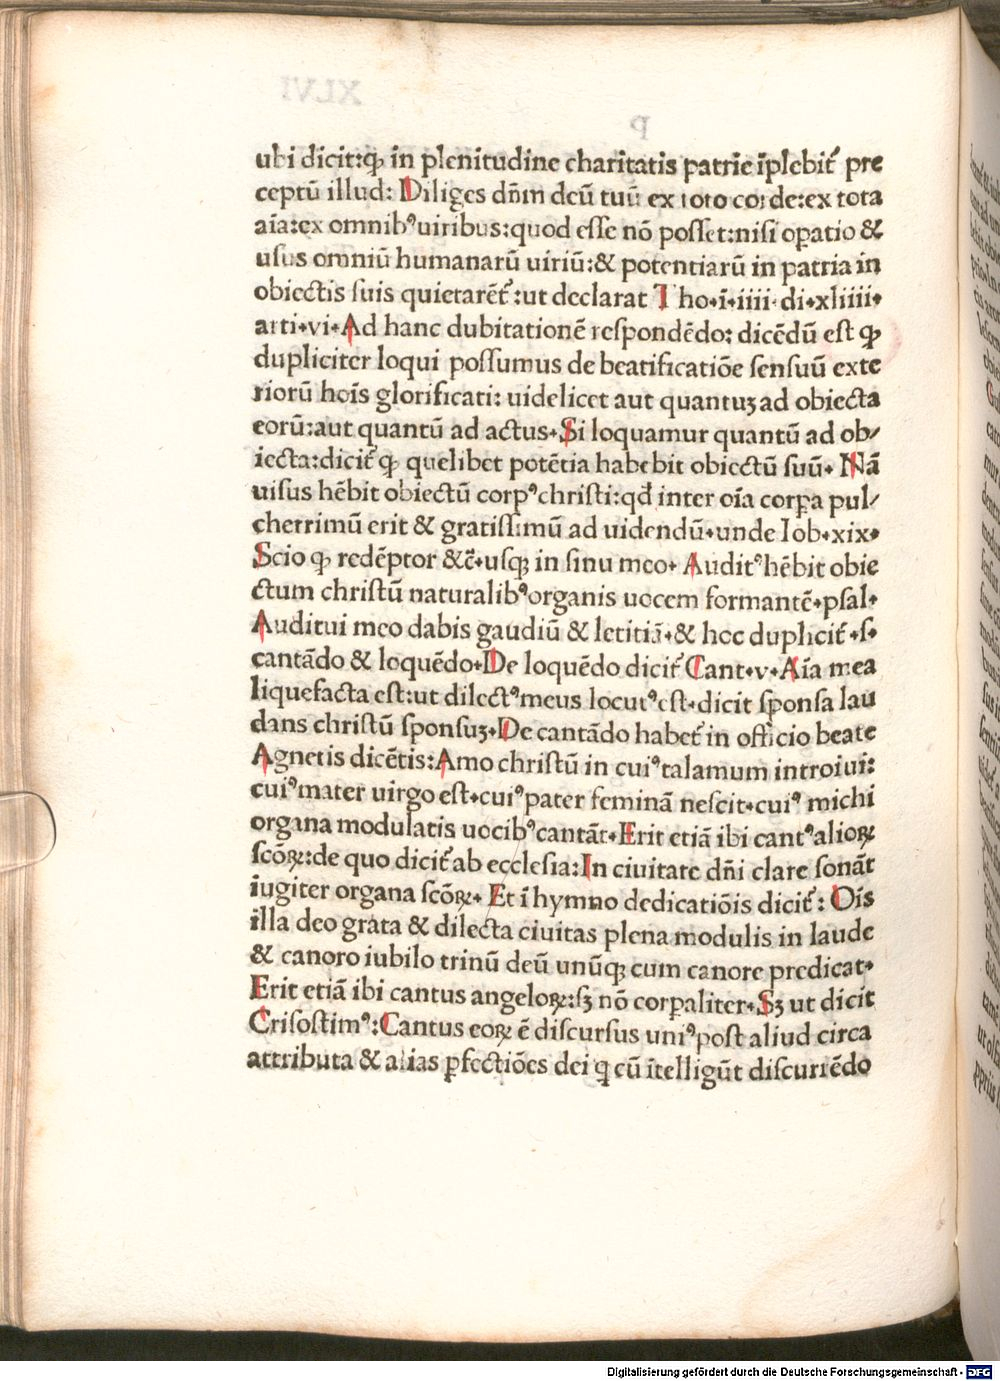 ubi dicit:ꝙ in plenitudine charitatis patrie īplebit᷑ pre
ceptū illud: Diliges dn̄m deū tuū ex toto corde:ex tota
aīa:ex omnibꝰ uiribus:quod esse nō posset:nisi oꝑatio &
usus omniū humanarū uiriū:& potentiarū in patria in
obiectis suis quietarēt᷑:ut declarat Tho.i.iiii.di.xliiii.
arti.vi.Ad hanc dubitationē respondēdo: dicēdū est ꝙ
dupliciter loqui possumus de beatificatiōe sensuū exte
riorū hoīs glorificati: uidelicet aut quantuꝫ ad obiecta
eorū:aut quantū ad actus.Si loquamur quantū ad ob/
iecta:dicit᷑ ꝙ quelibet potētia habebit obiectū suū. Nā
uisus hēbit obiectū corpꝰ christi:qđ inter oīa corꝑa pul/
cherrimū erit & gratissimū ad uidendū.unde Iob.xix.
Scio ꝙ redēptor &c̄.usqꝫ in sinu meo. Auditꝰ hēbit obie
ctum christū naturalibꝰ organis uocem formantē.psal.
Auditui meo dabis gaudiū & letitiā.& hoc duplicit᷑.s.
cantādo & loquēdo.De loquēdo dicit᷑ Cant.v.Aīa mea
liquefacta est:ut dilectꝰ meus locutꝰ est.dicit sponsa lau
dans christū sponsuꝫ.De cantādo habet᷑ in officio beate
Agnetis dicētis:Amo christū in cuiꝰ talamum introiui:
cuiꝰ mater uirgo est.cuiꝰ pater feminā nescit.cuiꝰ michi
organa modulatis uocibꝰ cantāt.Erit etiā ibi cantꝰ alioꝝ
scōꝝ:de quo dicit᷑ ab ecclesia:In ciuitate dn̄i clare sonāt
iugiter organa scōꝝ. Et ī hymno dedicatiōis dicit᷑: Oīs
illa deo grata & dilecta ciuitas plena modulis in laude
& canoro iubilo trinū deū unūqꝫ cum canore predicat.
Erit etiā ibi cantus angeloꝝ:sꝫ nō corꝑaliter.Sꝫ ut dicit
Crisostimꝰ:Cantus eoꝝ ē discursus uniꝰ post aliud circa
attributa & alias ꝑfectiōes dei q̄ cū ītelligūt discuriēdo
Digitalisierung gefördert durch die Deutsche Forschungsgemeinschaft - DFG